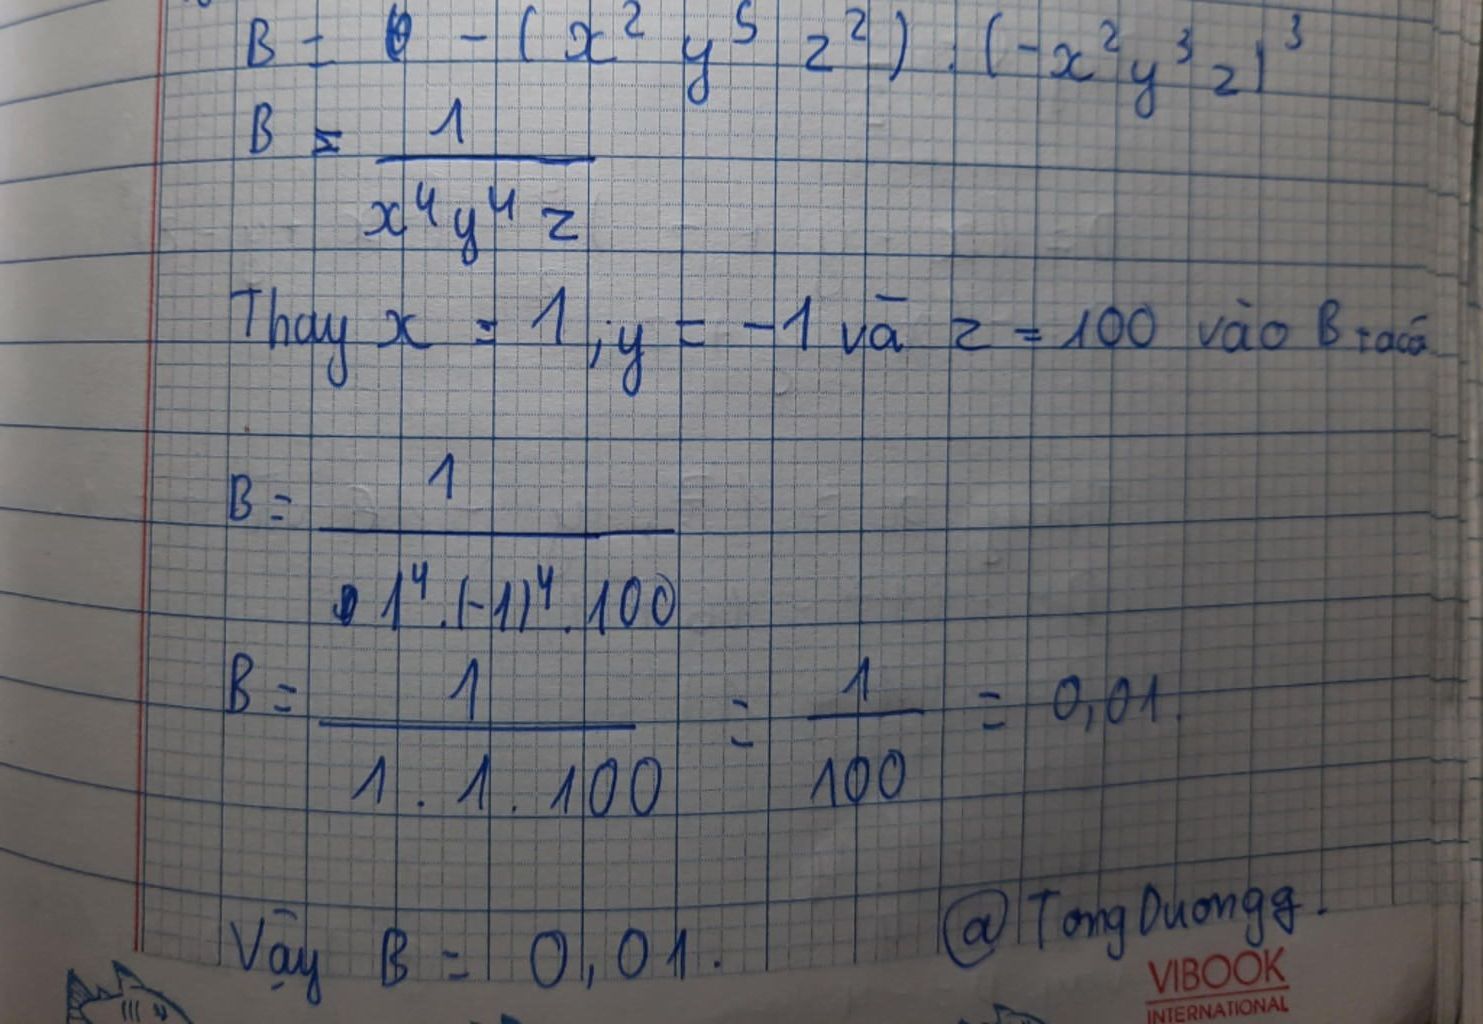 B = - (x² y⁵ z²) . (-x² y³ z)³
B = 1 / x⁴ y⁴ z
Thay x = 1, y = -1 và z = 100 vào B ta có
B = 1 / 1⁴ . (-1)⁴ . 100
B = 1 / 1 . 1 . 100 = 1 / 100 = 0,01.
Vậy B = 0,01.
@TongDuongg.
VIBOOK
INTERNATIONAL